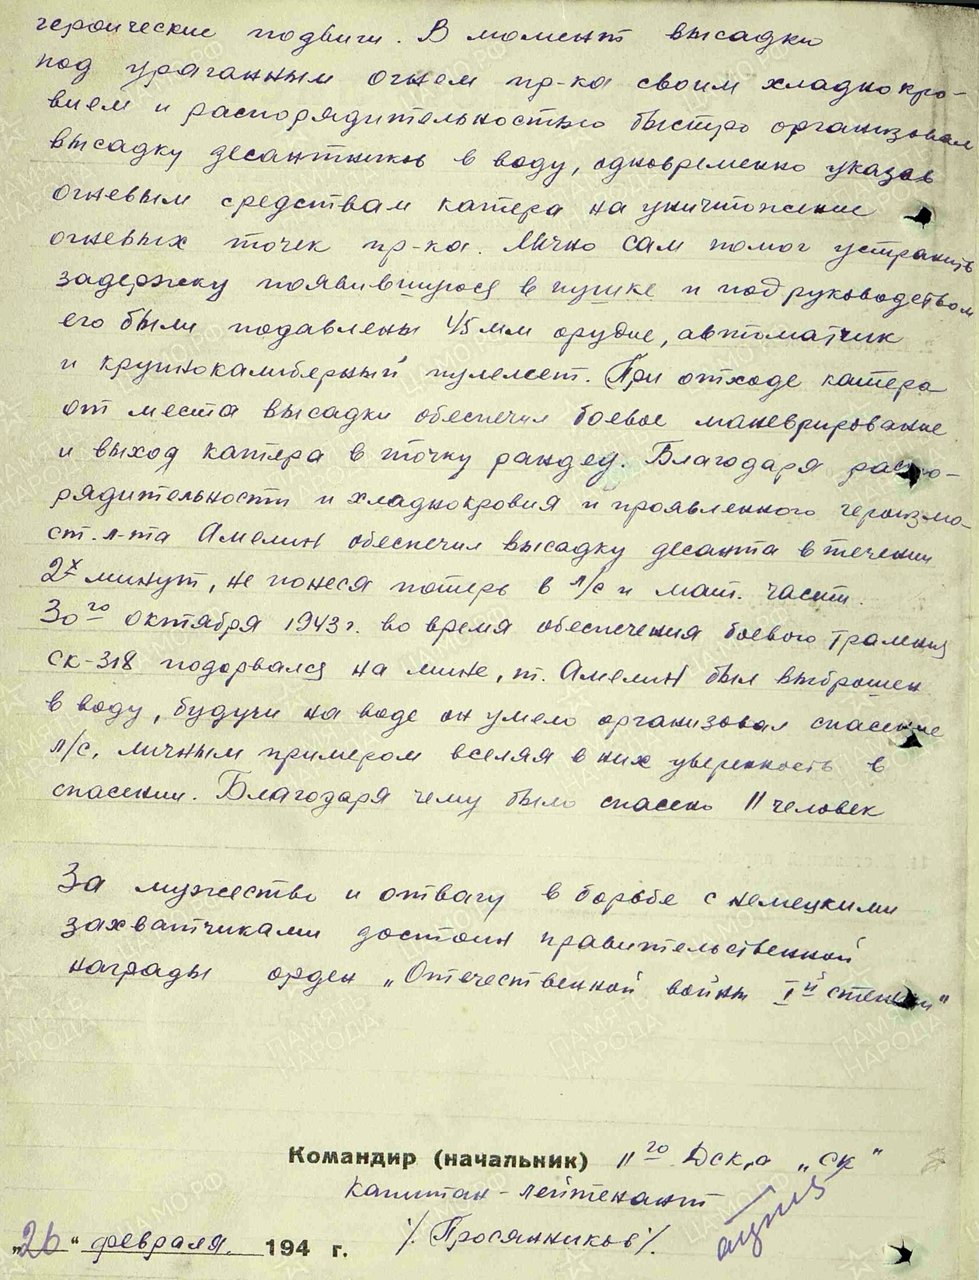 героические подвиги. В момент высадки
под ураганным огнем пр-ка своим хладнокро-
вием и распорядительностью быстро организовал
высадку десантников в воду, одновременно указав
огневым средствам катера на уничтожение
огневых точек пр-ка. Лично сам помог устранить
задержку появившуюся в пушке и под руководством
его были подавлены 45 мм орудие, автоматчик
и крупнокалиберный пулемет. При отходе катера
от места высадки обеспечил боевое маневрирование
и выход катера в точку рандеву. Благодаря распо-
рядительности и хладнокровия и проявленного героизма
ст. л-та Амелин обеспечил высадку десанта в течении
2х минут, не понеся потерь в л/с и мат. части.
30го октября 1943 г. во время обеспечения боевого траления
СК-318 подорвался на мине, т. Амелин был выброшен
в воду, будучи на воде он умело организовал спасение
л/с, личным примером вселяя в них уверенность в
спасении. Благодаря чему было спасено 11 человек
За мужество и отвагу в борьбе с немецкими
захватчиками достоин правительственной
награды орден „Отечественной войны I й степени"
Командир (начальник) 11го Дск-а „СК"
Капитан-лейтенант
„26" февраля 194 г. /Просянников/.
ПАМЯТЬ НАРОДА
ЦАМО РФ